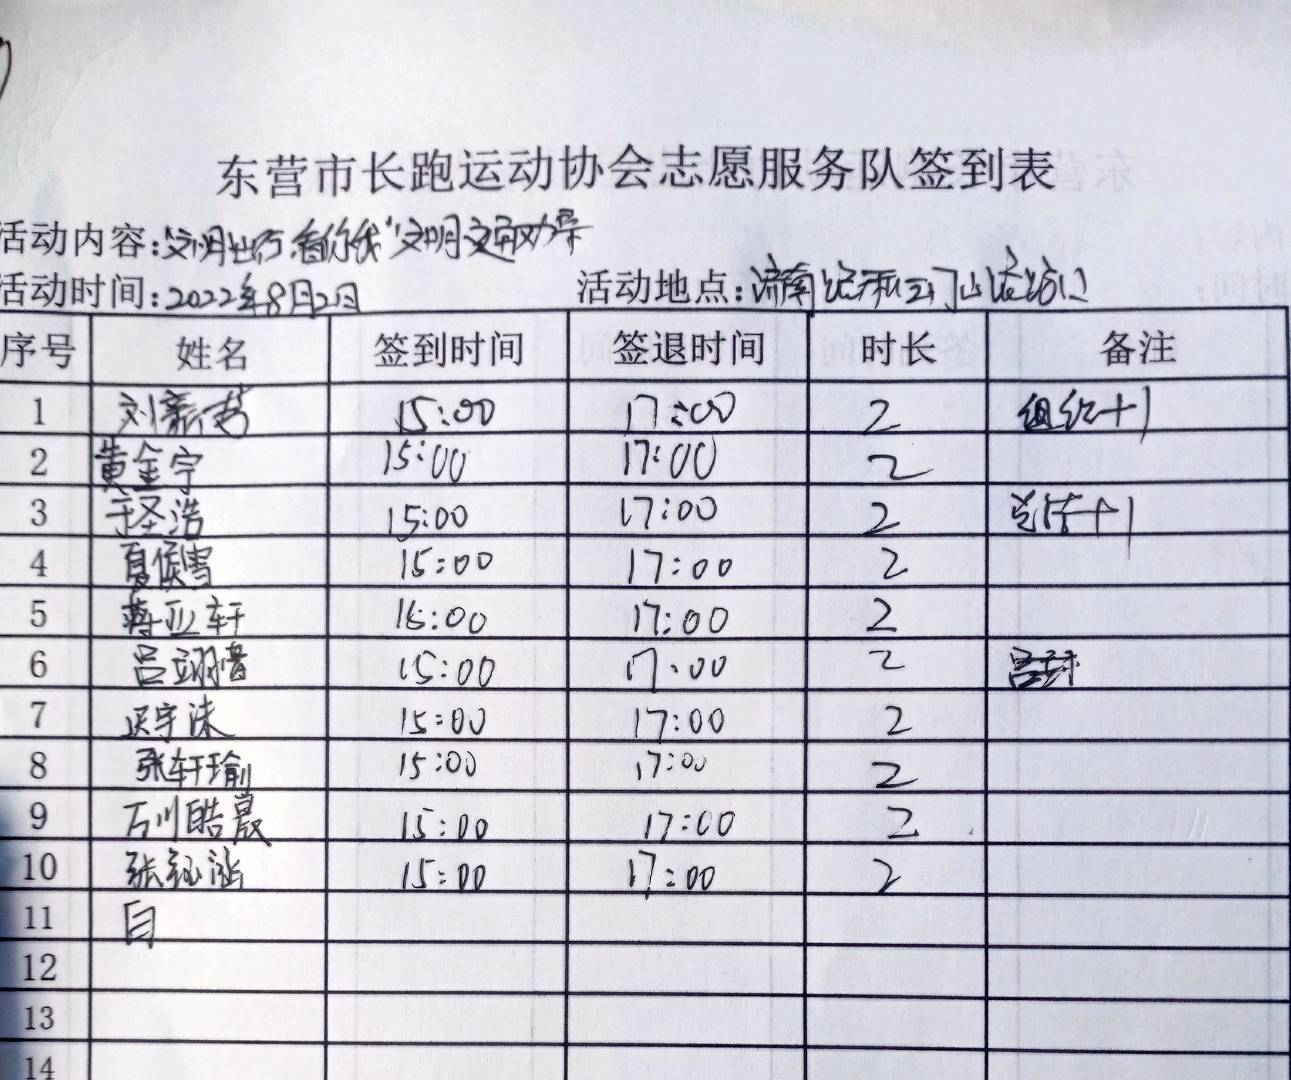 东营市长跑运动协会志愿服务队签到表
活动内容:"文明出行 看你我"文明交通劝导
活动时间:2022年8月2日 活动地点:济南路和
序号 姓名 签到时间 签退时间 时长 备注
1 刘 15:00 17:00 2 组织+1
2 黄金宇 15:00 17:00 2
3 于圣浩 15:00 17:00 2 总结+1
4 夏侯雪 15:00 17:00 2
5 蒋亚轩 15:00 17:00 2
6 吕翊 15:00 17:00 2
7 宇沫 15:00 17:00 2
8 张轩瑜 15:00 17:00 2
9 万川皓晟 15:00 17:00 2
10 张钰涵 15:00 17:00 2
11
12
13
14